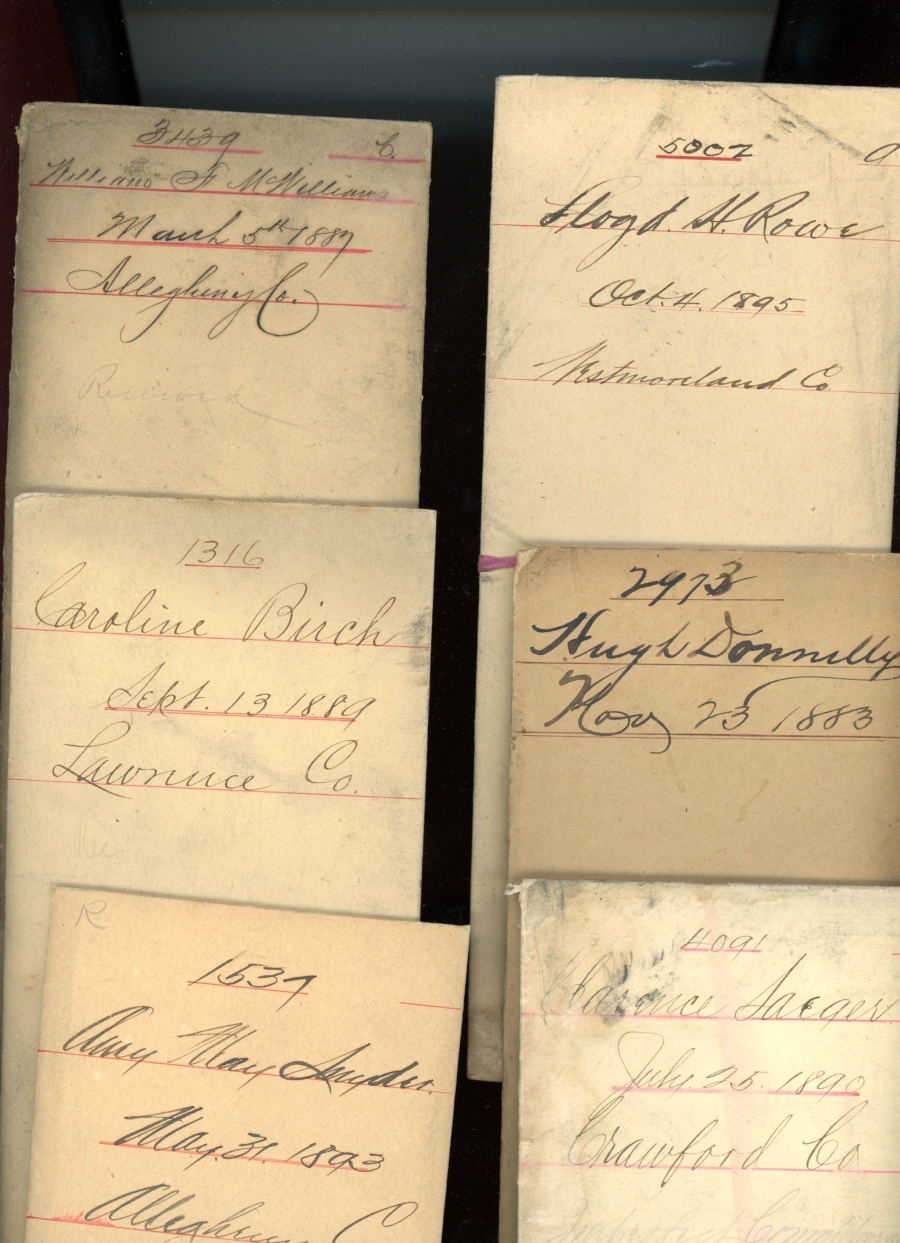 3439 C.
William F McWilliams
March 5th 1887
Allegheny Co.
Received
1316
Caroline Birch
Sept. 13 1889
Lawrence Co.
Rec
R
1537
Amy May Snyder.
May. 31. 1893
Allegheny C
5007 a
Floyd. H. Rowe
Oct. 4. 1895
Westmoreland Co
2973
Hugh Donnelly
Nov 23 1883
4091
Clarence Saeger
July. 25. 1890
Crawford Co